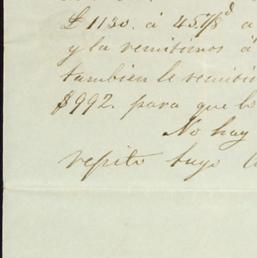 £ 1130. á 45⅞ᵈ a
y la remitimos á
tambien le remiti
$992. para que lo
No hay
repito tuyo